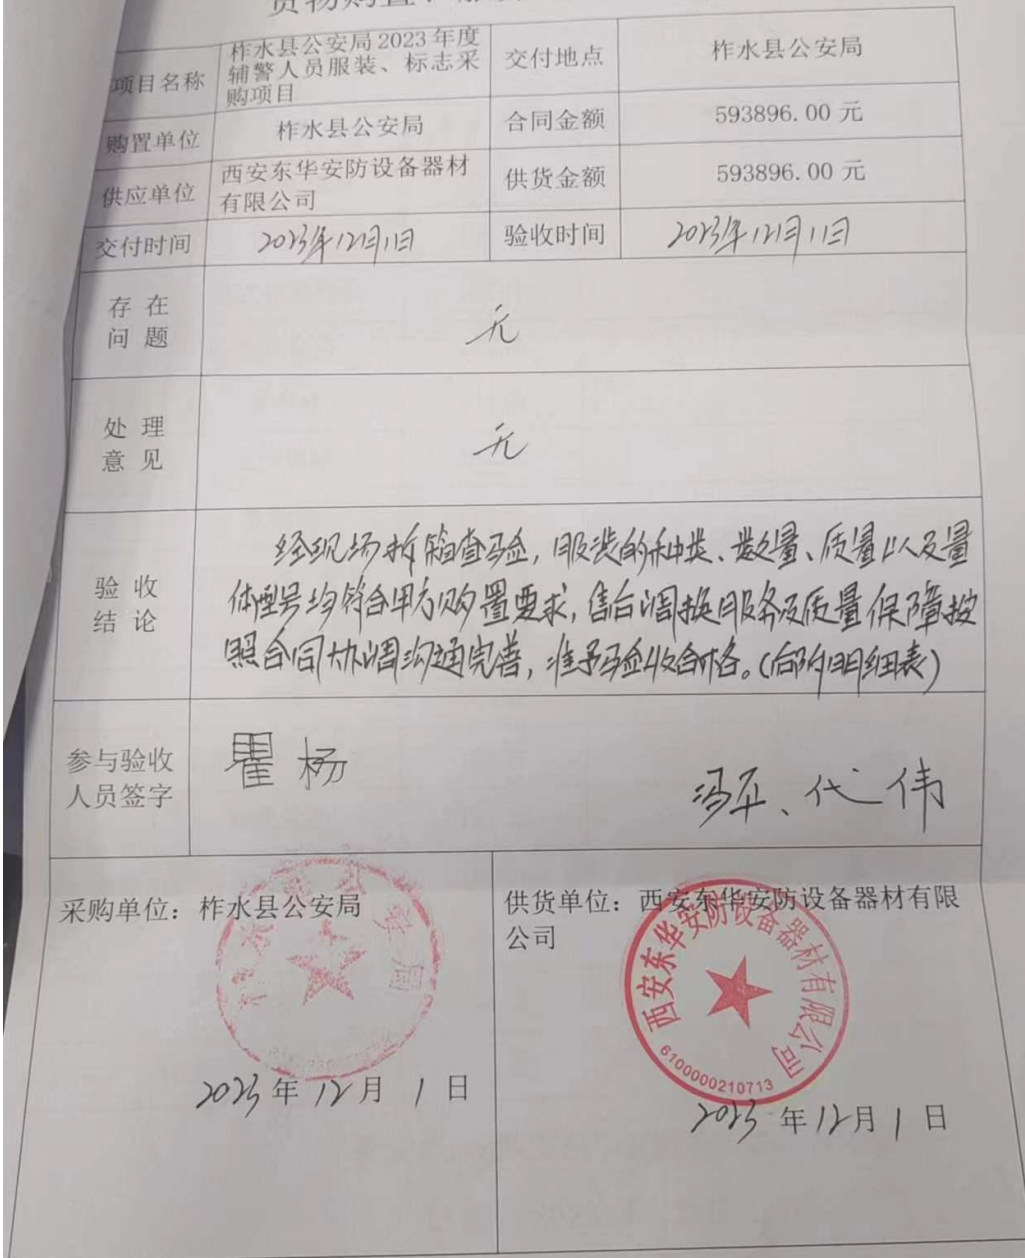 项目名称
柞水县公安局2023年度
辅警人员服装、标志采
购项目
交付地点
柞水县公安局
购置单位
柞水县公安局
合同金额
593896.00 元
供应单位
西安东华安防设备器材
有限公司
供货金额
593896.00 元
交付时间
2023年12月1日
验收时间
2023年12月1日
存 在
问 题
无
处 理
意 见
无
验 收
结 论
经现场拆箱查验，服装的种类、数量、质量以及量
体型号均符合甲方购置要求，售后调换服务及质量保障按
照合同协调沟通完善，准予验收合格。（后附明细表）
参与验收
人员签字
瞿杨
、代伟
采购单位：柞水县公安局
2023年12月1日
供货单位：西安东华安防设备器材有限
公司
西安东华安防设备器材有限公司
6100000210713
2023年12月1日